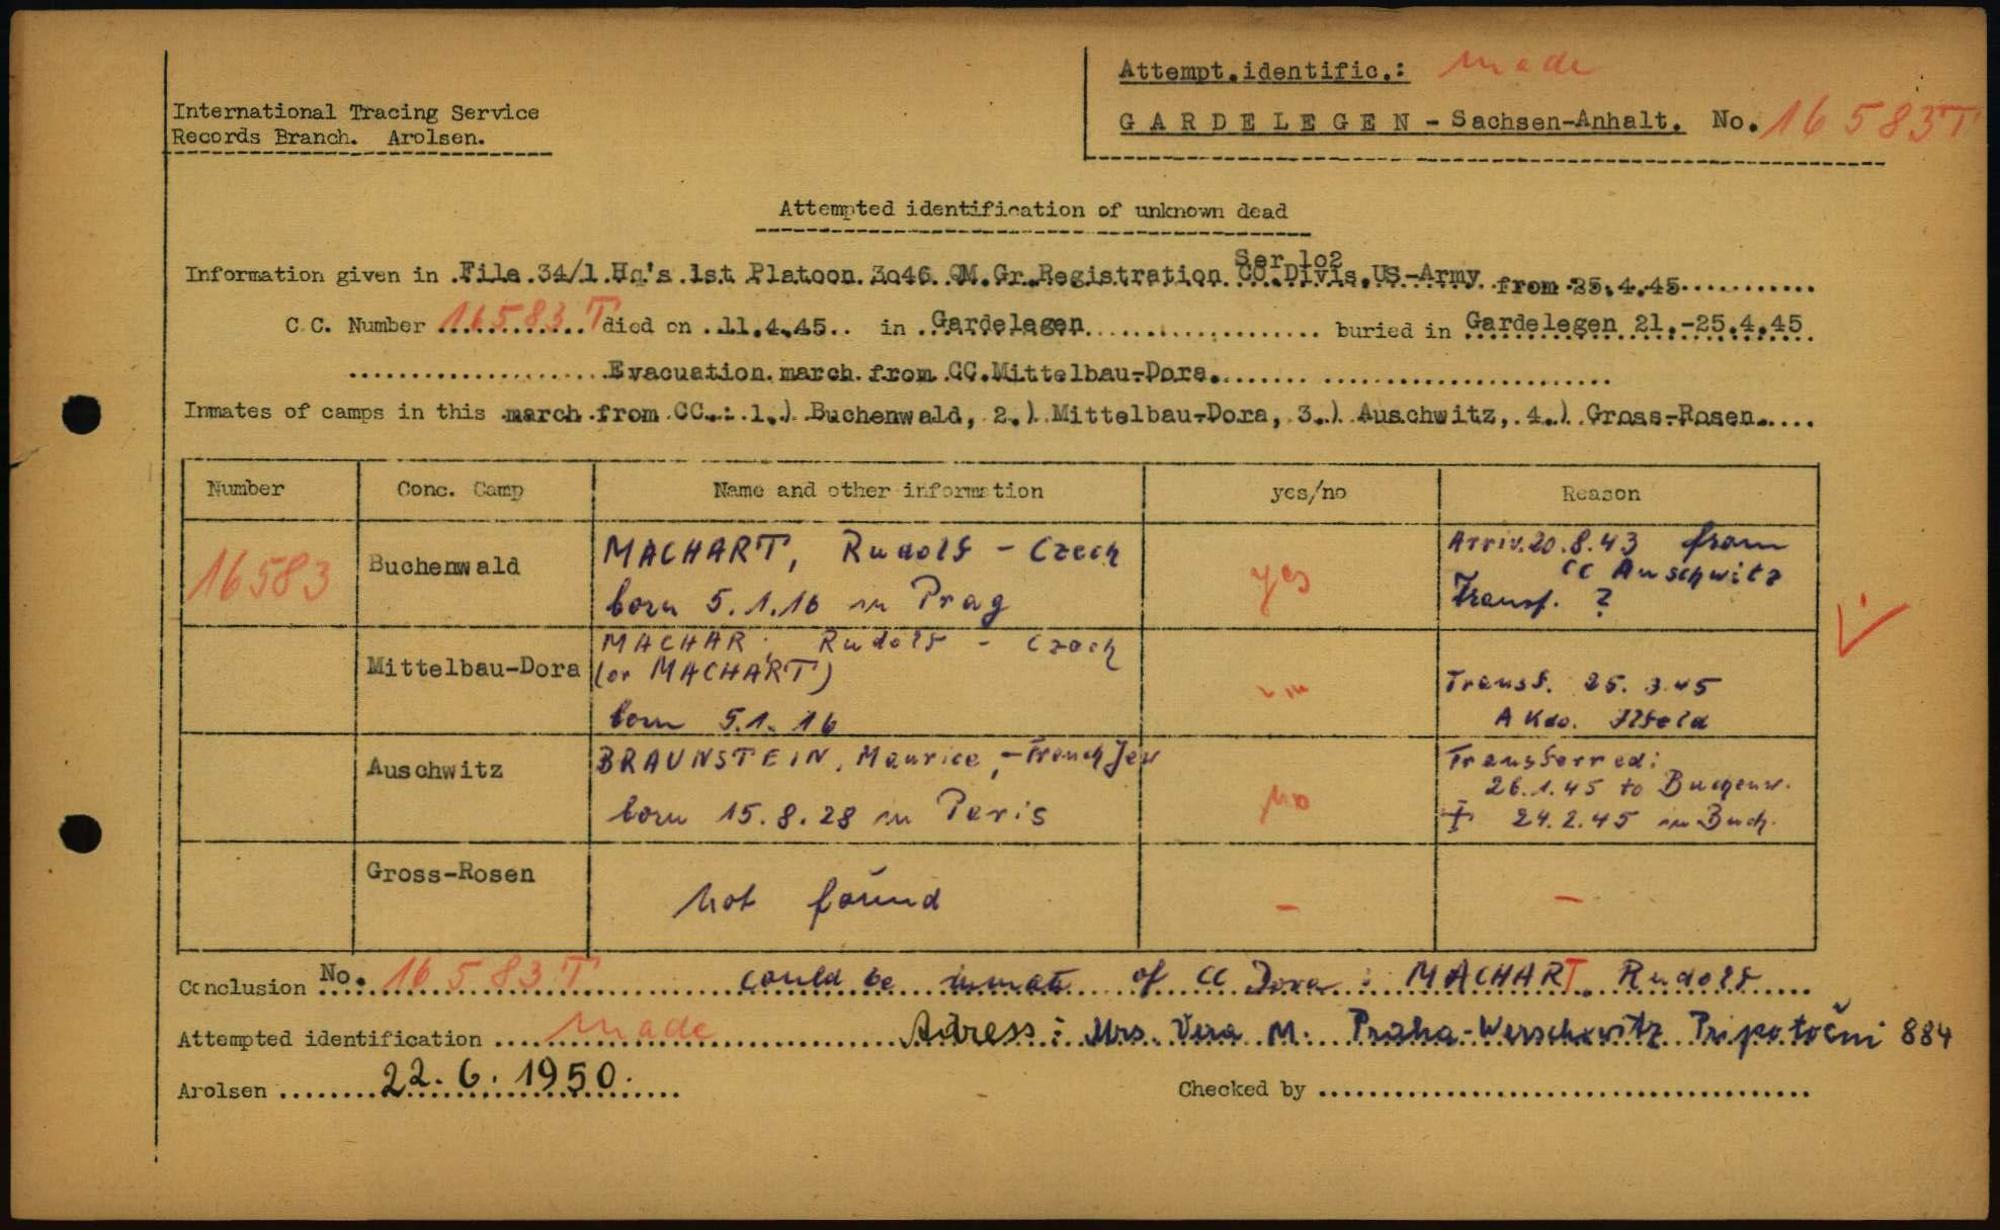 Attempt.identific.: made
International Tracing Service
Records Branch. Arolsen.
GARDELEGEN - Sachsen-Anhalt. No. 16583T
Attempted identification of unknown dead
Ser 1o2
Information given in File 34/1 Hq's 1st Platoon 3o46 QM.Gr.Registration CO.Divis.US-Army from 25.4.45
C.C. Number 16583T died on 11.4.45 in Gardelagen buried in Gardelegen 21.-25.4.45
Evacuation march from CC.Mittelbau-Dora.
Inmates of camps in this march from CC.: 1.) Buchenwald, 2.) Mittelbau-Dora, 3.) Auschwitz, 4.) Gross-Rosen.
Number Conc. Camp Name and other information yes/no Reason
16583 Buchenwald MACHART, Rudolf - Czech
born 5.1.16 in Prag
yes
Arriv. 20.8.43 from
CC Auschwitz
Transf. ?
Mittelbau-Dora MACHAR, Rudolf - Czech
(or MACHART)
born 5.1.16
Transf. 25.3.45
A Kdo. Ilfeld
Auschwitz BRAUNSTEIN, Maurice, - French Jew
born 15.8.28 in Paris
no
Transferred:
26.1.45 to Buchenw.
+ 24.2.45 in Buch.
Gross-Rosen not found - -
Conclusion No. 16583T could be inmate of CC Dora: MACHART, Rudolf
Attempted identification made Adress: Mrs. Vera M. Praha-Werschowitz Pripotočni 884
Arolsen 22.6.1950. Checked by